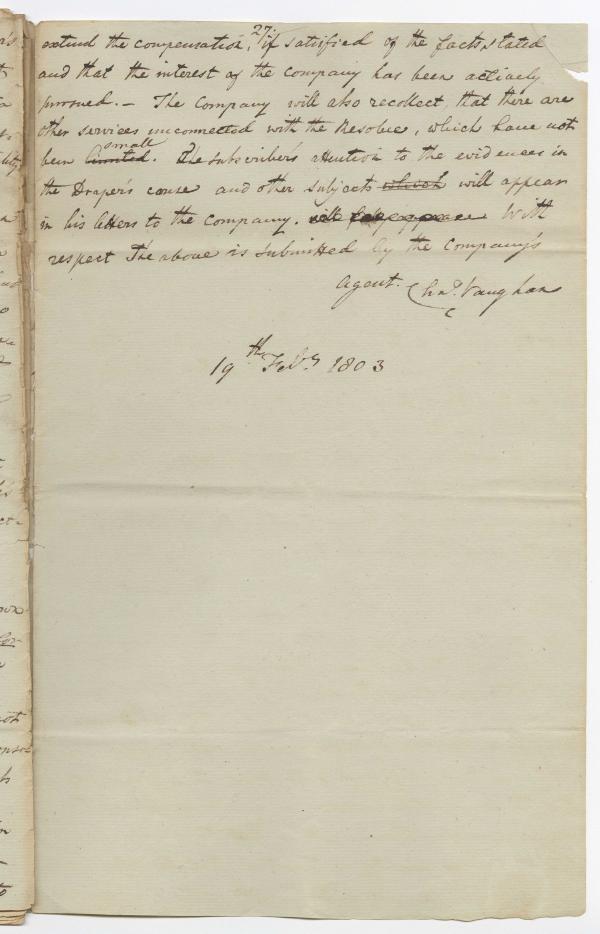 27.
extend the compensation, if satisfied of the facts stated
and that the interest of the company has been actively
pursued. — The Company will also recollect, that there are
other services unconnected with the Resolve, which have not
small
been limited. The subscriber's attention to the evidences in
the Draper's cause and other subjects which will appear
in his letters to the Company. will With
respect The above is submitted by the Company's
agent. Chas. Vaughan
19th Feby 1803